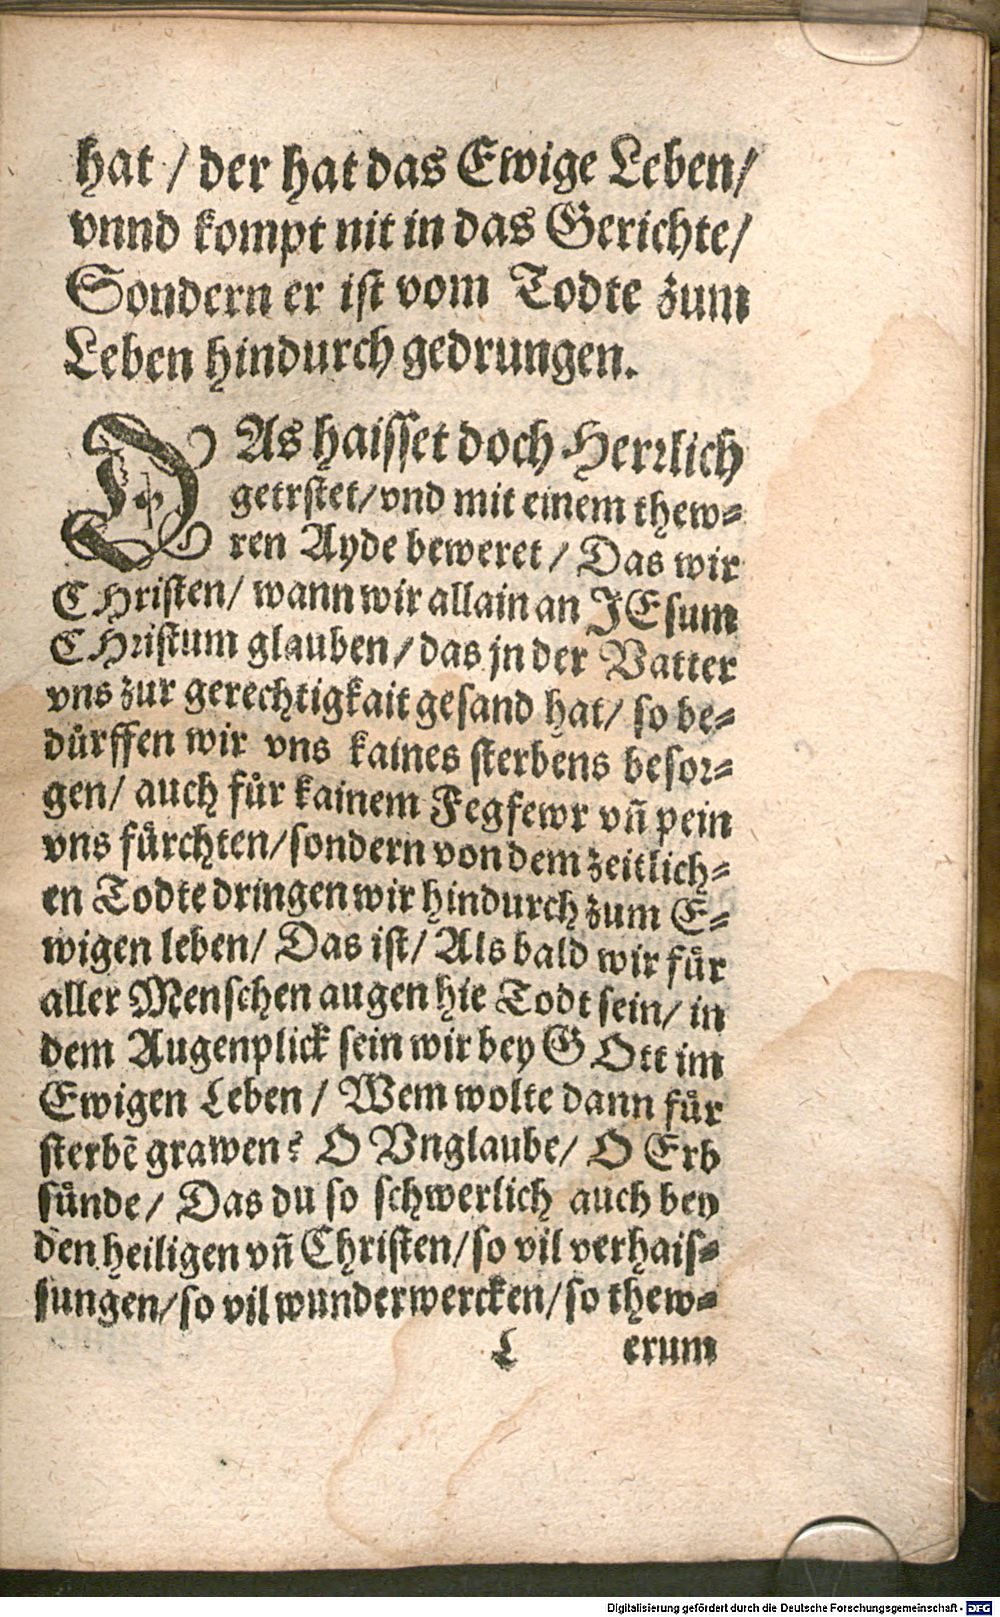 hat / der hat das Ewige Leben/
vnnd kompt nit in das Gerichte/
Sondern er ist vom Todte zum
Leben hindurch gedrungen.
DAs haisset doch Herrlich
getrstet/vnd mit einem thew⸗
ren Ayde beweret / Das wir
CHristen/ wann wir allain an JEsum
CHristum glauben/das jn der Vatter
vns zur gerechtigkait gesand hat/ so be⸗
duͤrffen wir vns kaines sterbens besor⸗
gen/ auch fuͤr kainem Fegfewr vn̄ pein
vns fuͤrchten/sondern von dem zeitlich⸗
en Todte dringen wir hindurch zum E⸗
wigen leben/ Das ist/ Als bald wir fuͤr
aller Menschen augen hie Todt sein/ in
dem Augenplick sein wir bey GOtt im
Ewigen Leben / Wem wolte dann fuͤr
sterbē grawen? O Vnglaube/ O Erb
suͤnde/ Das du so schwerlich auch bey
den heiligen vn̄ Christen/so vil verhais⸗
sungen/so vil wunderwercken/so thew⸗
L erum
Digitalisierung gefördert durch die Deutsche Forschungsgemeinschaft - DFG